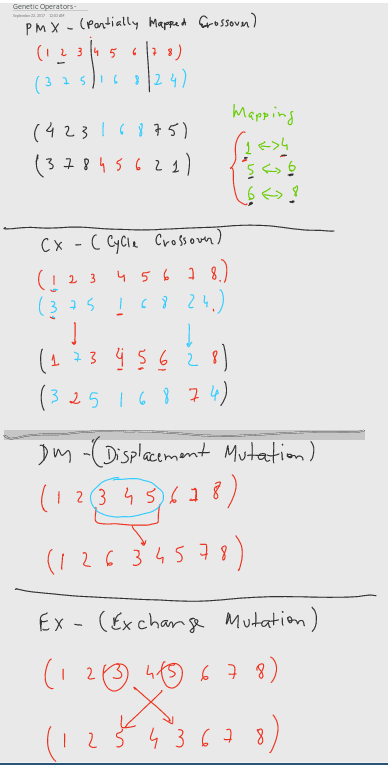 Genetic Operators -
September 22, 2017 12:01 AM
PMX - (Partially Mapped Crossover)
(1 2 3 4 5 6 7 8)
(3 7 5 1 6 8 2 4)
(4 2 3 1 6 8 7 5)
(3 7 8 4 5 6 2 1)
Mapping
1 <-> 4
5 <-> 6
6 <-> 8
CX - (Cycle Crossover)
(1 2 3 4 5 6 7 8.)
(3 7 5 1 6 8 2 4.)
(1 7 3 4 5 6 2 8)
(3 2 5 1 6 8 7 4)
DM - (Displacement Mutation)
(1 2 3 4 5 6 7 8)
(1 2 6 3 4 5 7 8)
EX - (Exchange Mutation)
(1 2 3 4 5 6 7 8)
(1 2 5 4 3 6 7 8)